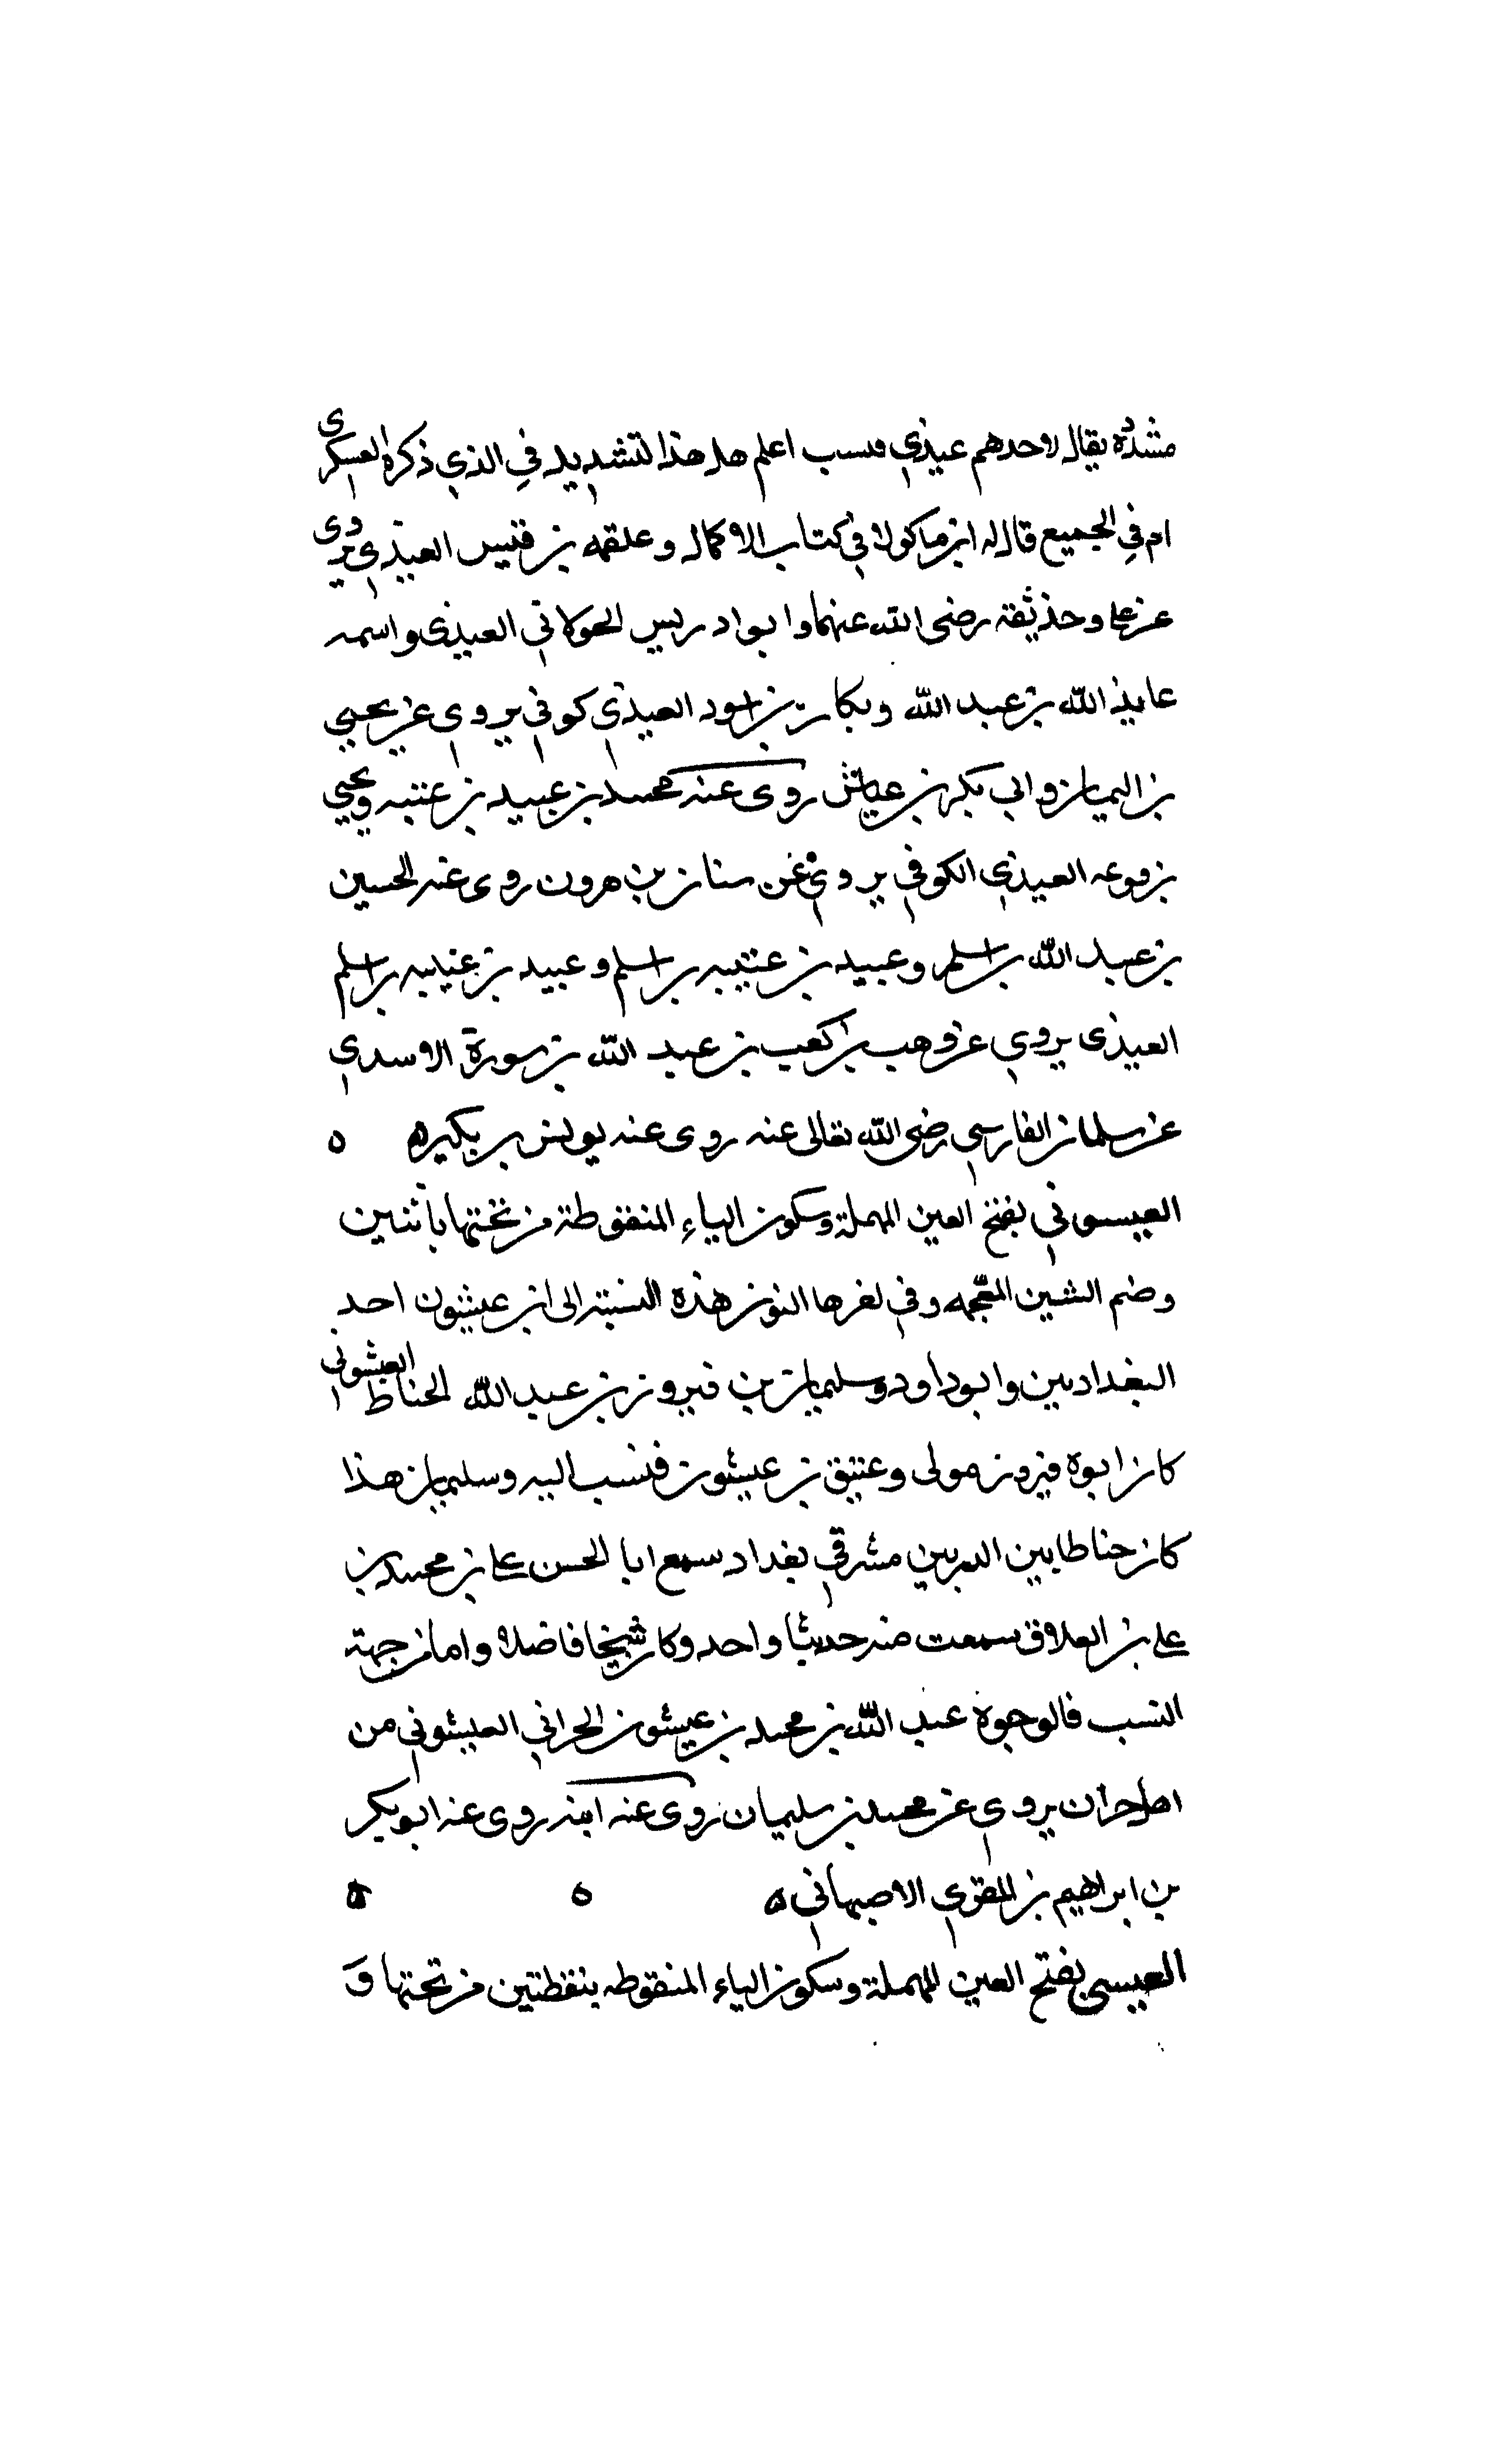 مشدّده يقال لاحدهم عيذي ولست اعلم هل هذا لتشديد في الذي ذكره العسكرى
ام في الجميع قال له ابن ماكولا في كتاب الاكمال وعلقمه بن قيس العيذي يروى
عن علي وحذيفة رضى الله عنهما وابو ادريس الحولاني العيذى واسمه
عايذ الله بن عبد الله وبكار بن اسود العيذي كوفي يروي عن يحيي
بن اليمان وابي بكر بن عياش روى عنه محمد بن عبيد بن عتبه ويحيي
بن العيذي الكوفي يروي عن سنان بن هرون روى عنه الحسين
بن عبد الله بن اسلم وعبيد بن عتيبه بن اسلم وعبيد بن عتيبه بن اسلم
العيذى يروي عن وهب بن كعب بن عبد الله بن سورة الاسدي
عن سلمان الفارسي رضى الله تعالى عنه روى عنه يونس بن بكير ه ه
العيسوني بفتح العين المهملة وسكون الياء المنقوطة من تحتها باثنين
وضم الشين المعجمه وفي اخرها النون هذه النسبة الى ابن عيشون احد
البغداديين وابو داود وسليمان بن فيروز بن عبد الله الحناط العيشوني
كان ابوه فيروز مولى وعتيق بن عيشون فنسب اليه وسليمان هذا
كان حناطا بين الدربين مشرقي بغداد سمع ابا الحسن علي بن محمد بن
علي بن العلاق سمعت منه حديثا واحد وكان شيخا فاضلا واما من جهة
النسب فالوجوة عبد الله بن محمد بن عيشون الحراني العيشوني من
اهل حران يروي عن محمد بن سليمان روى عنه ابنه روى عنه ابو بكر
بن ابراهيم بن المقوي الاصبهاني ه ه ه
العيسي بفتح العين المهملة وسكون الياء المنقوطه بنقطتين من تحتها و